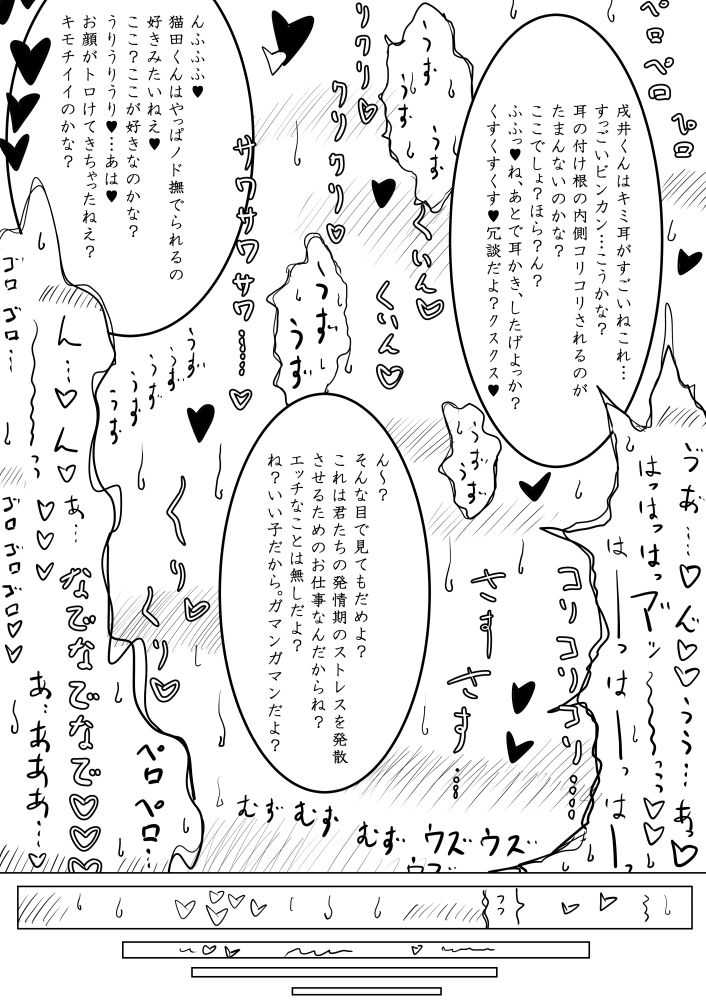 戌井くんはキミ耳がすごいねこれ…
すっごいビンカン…こうかな?
耳の付け根の内側コリコリされるのが
たまんないのかな?
ここでしょ?ほら?ん?
ふふっ♥ね、あとで耳かき、したげよっか?
くすくすくす♥冗談だよ?クスクス♥
んふふふ♥
猫田くんはやっぱノド撫でられるの
好きみたいねえ♥
ここ?ここが好きなのかな?
うりうりうり♥…あは♥
お顔がトロけてきちゃったねえ?
キモチイイのかな?
ん〜?
そんな目で見てもだめよ?
これは君たちの発情期のストレスを発散
させるためのお仕事なんだからね?
エッチなことは無しだよ?
ね?いい子だから。ガマンガマンだよ?
ペロペロ
ペロ
うず
うず
うず
クリクリ
クリクリ♡
くぃん♡
くぃん♡
サワサワサワサワ…♡
うず
うず
うず
うず
うず
うず
うず
うず
ゴロゴロ…
ん…♡ん♡
あ…
ゴロゴロゴロ♡♡
なでなでなでなで♡♡♡
あ…あああ…♡
ペロペロ…
くり♡
さす
さす…
コリコリコリコリ…
はっはっはっ
はーっはーっはーっ
うう…あっ♡
むず
むず
むず
ウズウズ
ウズ